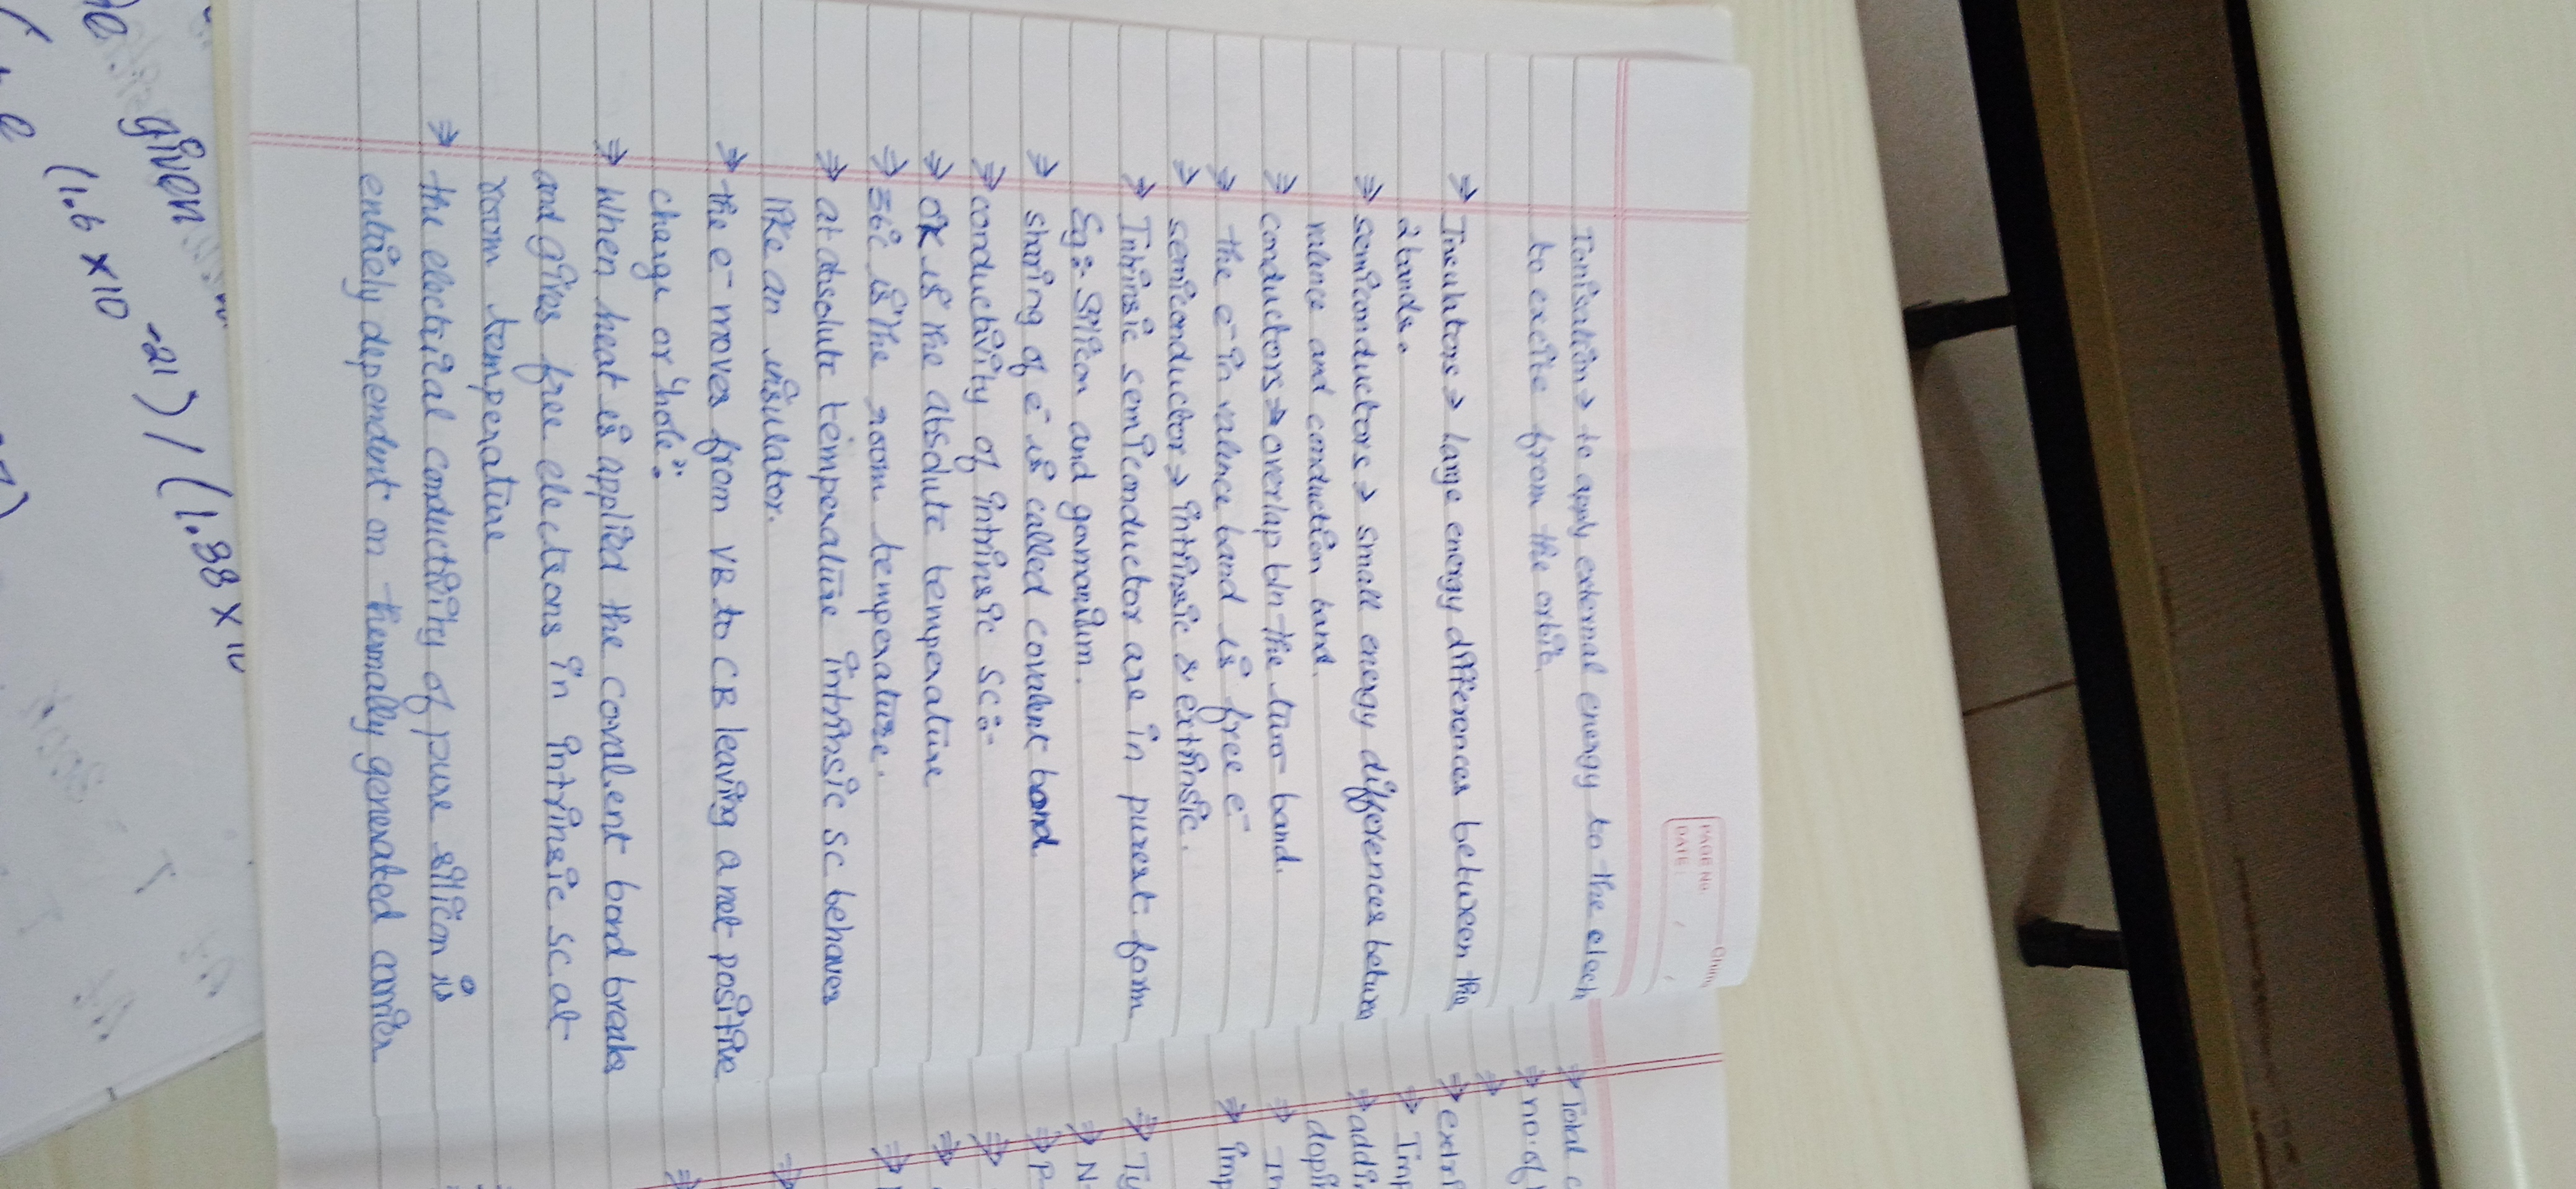 PAGE No.
DATE :
Ionisation → to apply external energy to the elect
to excite from the orbit.
⇒ Insulators → large energy differences between the
2 bands.
⇒ semiconductors → small energy differences between
valence and conduction band.
⇒ conductors → overlap b/n the two band.
⇒ the e⁻ in valence band is free e⁻
⇒ semiconductor → intrinsic & extrinsic.
⇒ Intrinsic semiconductor are in purest form
Eg:- Silicon and germanium.
⇒ sharing of e⁻ is called covalent bond.
⇒ conductivity of intrinsic SC:-
⇒ 0K is the absolute temperature
⇒ is the room temperature.
⇒ at absolute temperature intrinsic SC behaves
like an insulator.
⇒ the e⁻ moves from VB to CB leaving a net positive
charge or "hole".
⇒ When heat is applied the covalent bond breaks
and gives free electrons in intrinsic SC at
room temperature
⇒ the electrical conductivity of pure silicon is
entirely dependent on thermally generated carrier
⇒ Total c
⇒ no. of
⇒
⇒ extri
⇒ Imp
⇒ addin
dopin
⇒ In
⇒ imp
⇒ Ty
⇒ N-
⇒ P-
given
(1.6 × 10⁻²¹) / (1.38 × 10